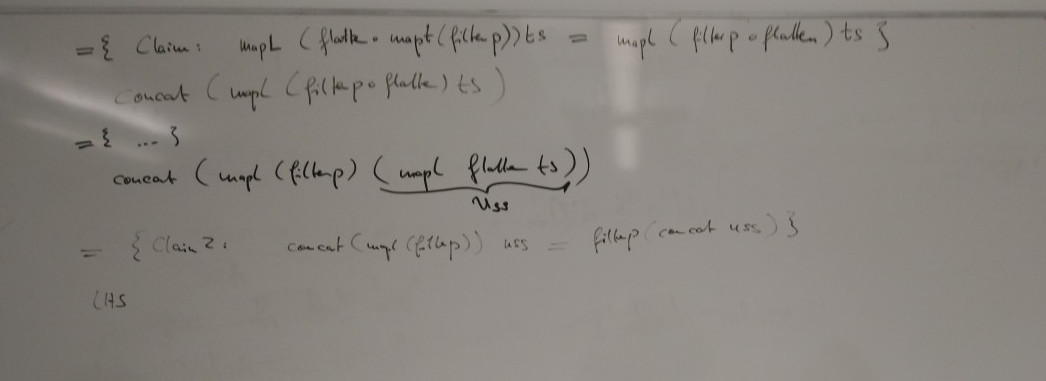 = { Claim: mapL (flatte ∘ mapt (filter p)) ts = mapl (filter p ∘ flatten) ts }
concat (mapl (filter p ∘ flatte) ts)
= { ... }
concat (mapl (filter p) (mapl flatten ts))
uss
= { Claim 2: concat (mapl (filter p)) uss = filter p (concat uss) }
LHS